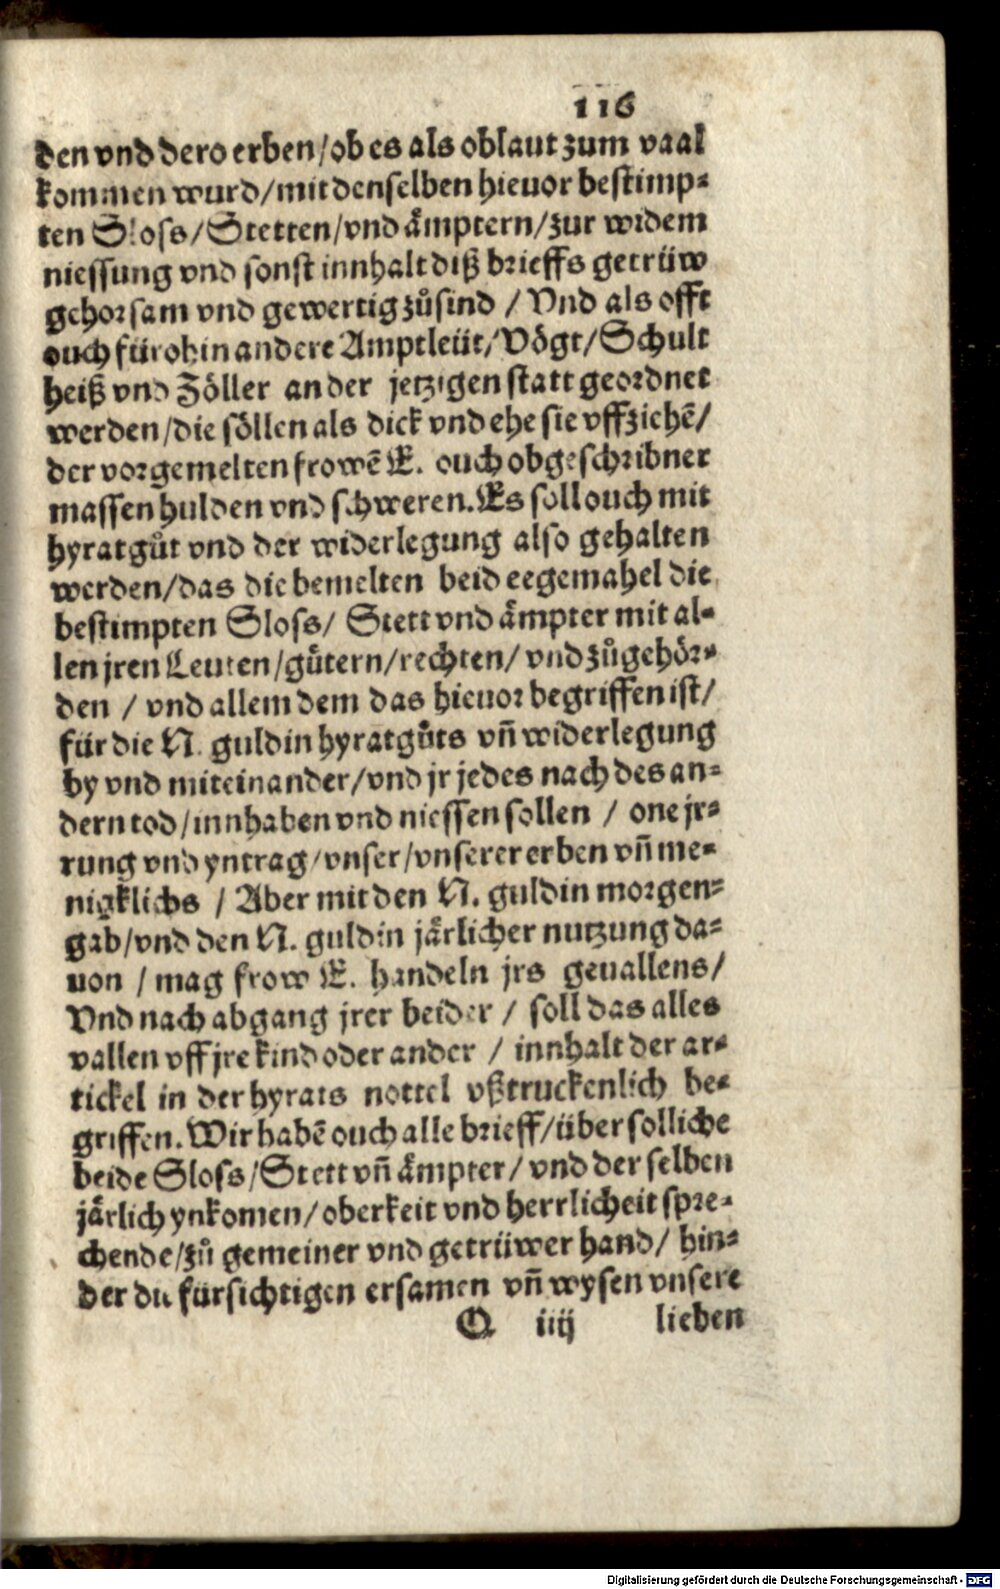 116
den vnd dero erben/ob es als oblaut zum vaal
kommen wurd/mit denselben hieuor bestimp⸗
ten Sloss/Stetten/vnd aͤmptern/zur widem
niessung vnd sonst innhalt diß brieffs getrüw
gehorsam vnd gewertig zuͦ sind / Vnd als offt
ouch fürohin andere Amptleüt/Voͤgt/Schult
heiß vnd Zoͤller an der jetzigen statt geordnet
werden/die soͤllen als dick vnd ehe sie vffziehẽ/
der vorgemelten frowẽ E. ouch obgeschribner
massen hulden vnd schweren. Es soll ouch mit
hyratguͦt vnd der widerlegung also gehalten
werden/das die bemelten beid eegemahel die
bestimpten Sloss/ Stett vnd aͤmpter mit al⸗
len jren Leuten/guͤtern/rechten/ vnd zuͦgehoͤr⸗
den / vnd allem dem das hieuor begriffen ist/
für die N. guldin hyratguͦts vñ widerlegung
by vnd miteinander/vnd jr jedes nach des an⸗
dern tod/innhaben vnd niessen sollen / one jr⸗
rung vnd yntrag/vnser/vnserer erben vñ me⸗
nigklichs / Aber mit den N. guldin morgen⸗
gab/vnd den N. guldin jaͤrlicher nutzung da⸗
uon / mag frow E. handeln jrs geuallens/
Vnd nach abgang jrer beider / soll das alles
vallen vff jre kind oder ander / innhalt der ar⸗
tickel in der hyrats nottel vßtruckenlich be⸗
griffen. Wir habẽ ouch alle brieff/über solliche
beide Sloss/Stett vñ aͤmpter/ vnd der selben
jaͤrlich ynkomen/oberkeit vnd herrlicheit spre⸗
chende/zuͦ gemeiner vnd getrüwer hand/ hin⸗
der die fürsichtigen ersamen vñ wysen vnsere
Q iiij lieben
Digitalisierung gefördert durch die Deutsche Forschungsgemeinschaft - DFG